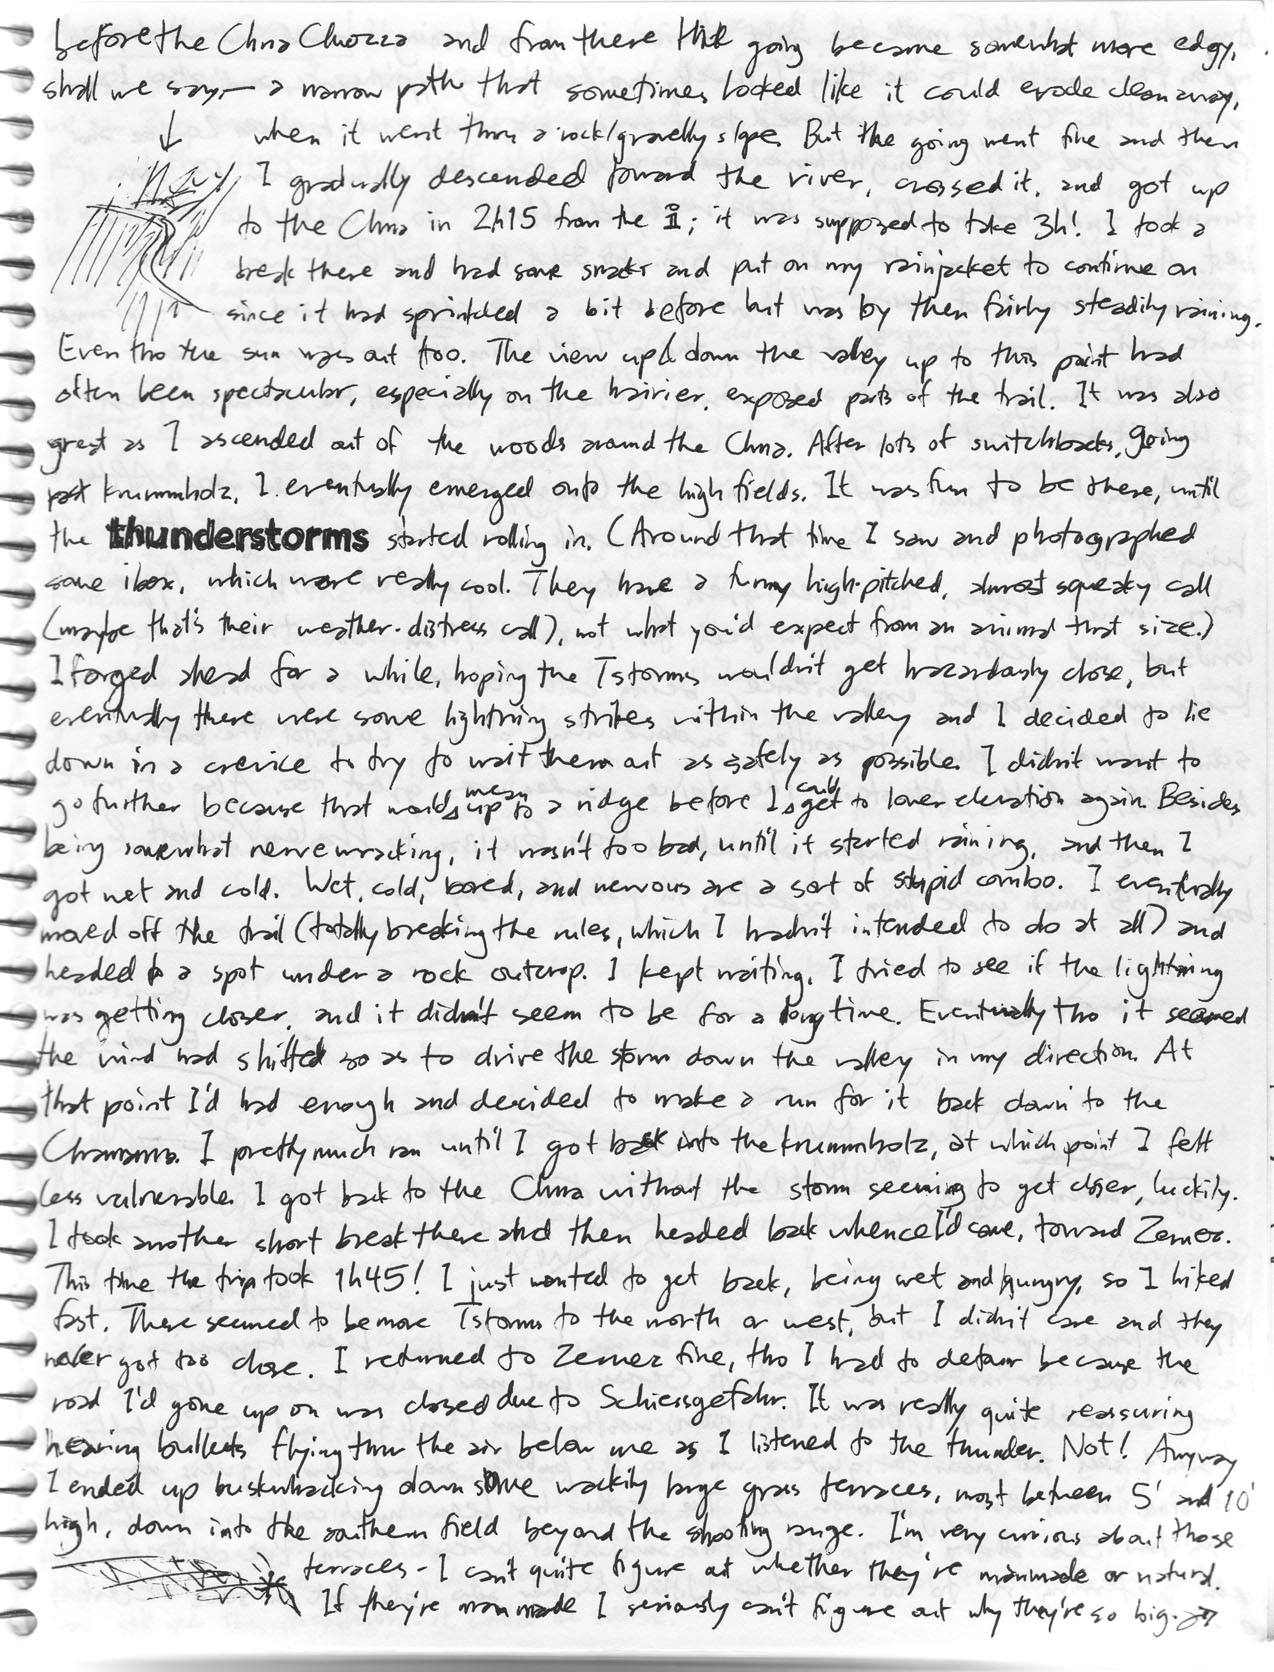 before the Chna Cluozza and from there the going became somewhat more edgy,
shall we say, — a narrow path that sometimes looked like it could erode clean away,
↓ when it went thru a rock/gravelly slope. But the going went fine and then
I gradually descended toward the river, crossed it, and got up
to the Chna in 2h15 from the ; it was supposed to take 3h! I took a
break there and had some snacks and put on my rainjacket to continue on
since it had sprinkled a bit before but was by then fairly steadily raining.
Even tho the sun was out too. The view up & down the valley up to this point had
often been spectacular, especially on the hairier, exposed parts of the trail. It was also
great as I ascended out of the woods around the Chna. After lots of switchbacks, going
past krummholz, I eventually emerged onto the high fields. It was fun to be there, until
the thunderstorms started rolling in. (Around that time I saw and photographed
some ibex, which were really cool. They have a funny high-pitched, almost squeaky call
(maybe that's their weather-distress call), not what you'd expect from an animal that size.)
I forged ahead for a while, hoping the Tstorms wouldn't get hazardously close, but
eventually there were some lightning strikes within the valley and I decided to lie
down in a crevice to try to wait them out as safely as possible. I didn't want to
go further because that would mean up to a ridge before I could get to lower elevation again. Besides
being somewhat nervewracking, it wasn't too bad, until it started raining, and then I
got wet and cold. Wet, cold, bored, and nervous are a sort of stupid combo. I eventually
moved off the trail (totally breaking the rules, which I hadn't intended to do at all) and
headed to a spot under a rock outcrop. I kept waiting, I tried to see if the lightning
was getting closer, and it didn't seem to be for a long time. Eventually tho it seemed
the wind had shifted so as to drive the storm down the valley in my direction. At
that point I'd had enough and decided to make a run for it back down to the
Chamanna. I pretty much ran until I got back into the krummholz, at which point I felt
less vulnerable. I got back to the Chna without the storm seeming to get closer, luckily.
I took another short break there and then headed back whence I'd come, toward Zernez.
This time the trip took 1h45! I just wanted to get back, being wet and hungry, so I hiked
fast. There seemed to be more Tstorms to the north or west, but I didn't care and they
never got too close. I returned to Zernez fine, tho I had to detour because the
road I'd gone up on was closed due to Schiessgefahr. It was really quite reassuring
hearing bullets flying thru the air below me as I listened to the thunder. Not! Anyway
I ended up bushwhacking down some wackily large grass terraces, most between 5' and 10'
high, down into the southern field beyond the shooting range. I'm very curious about those
terraces - I can't quite figure out whether they're manmade or natural.
If they're manmade I seriously can't figure out why they're so big. →